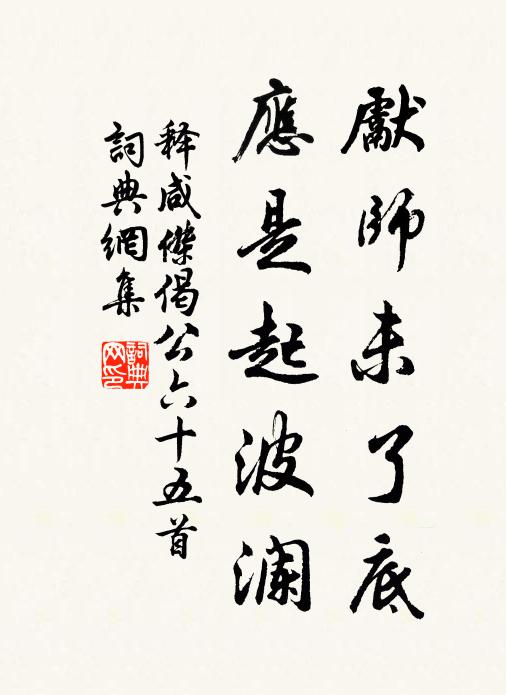 獻師未了底
應是起波澜
释咸傑偈公六十五首
詞典網集
詞典網印